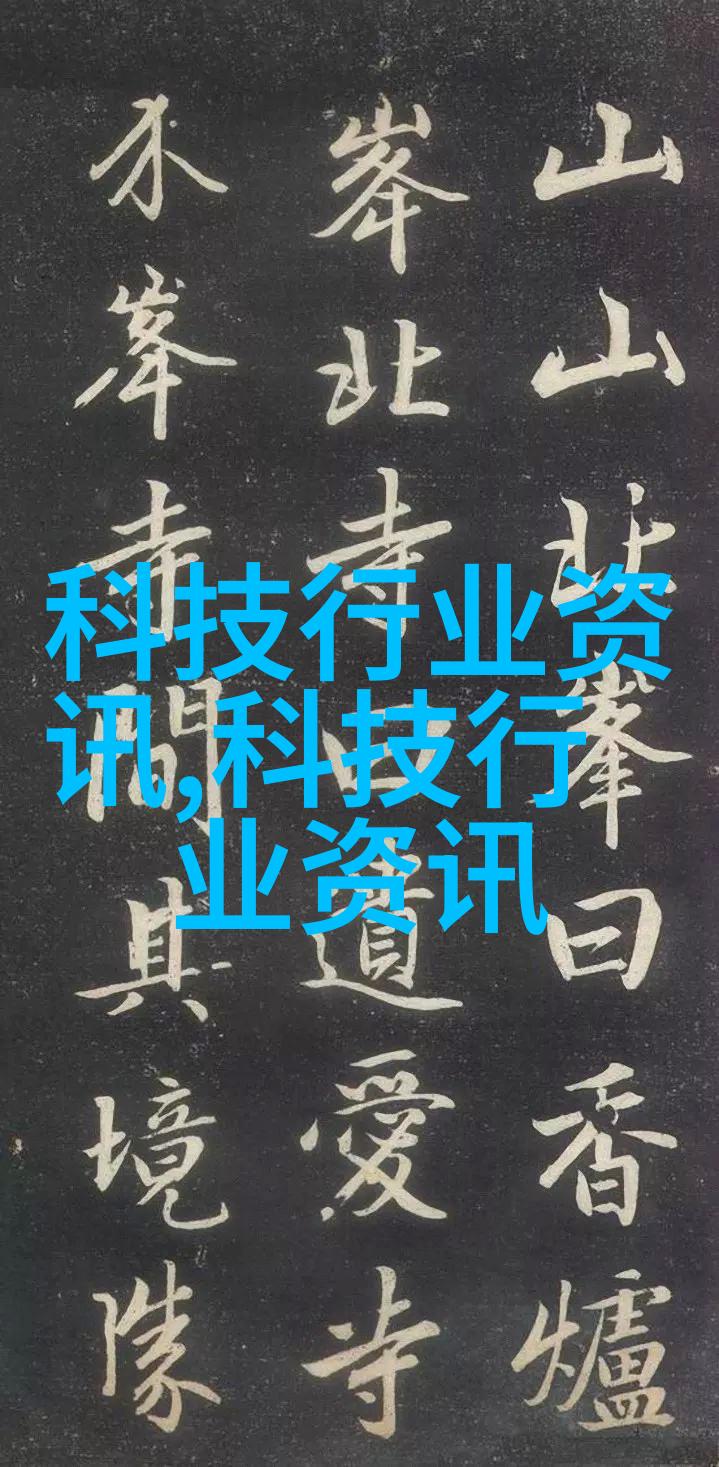 山山北峯曰香爐
峯北寺曰遺愛寺
介峯寺間其境勝
科技行业资
讯,科技行
业资讯